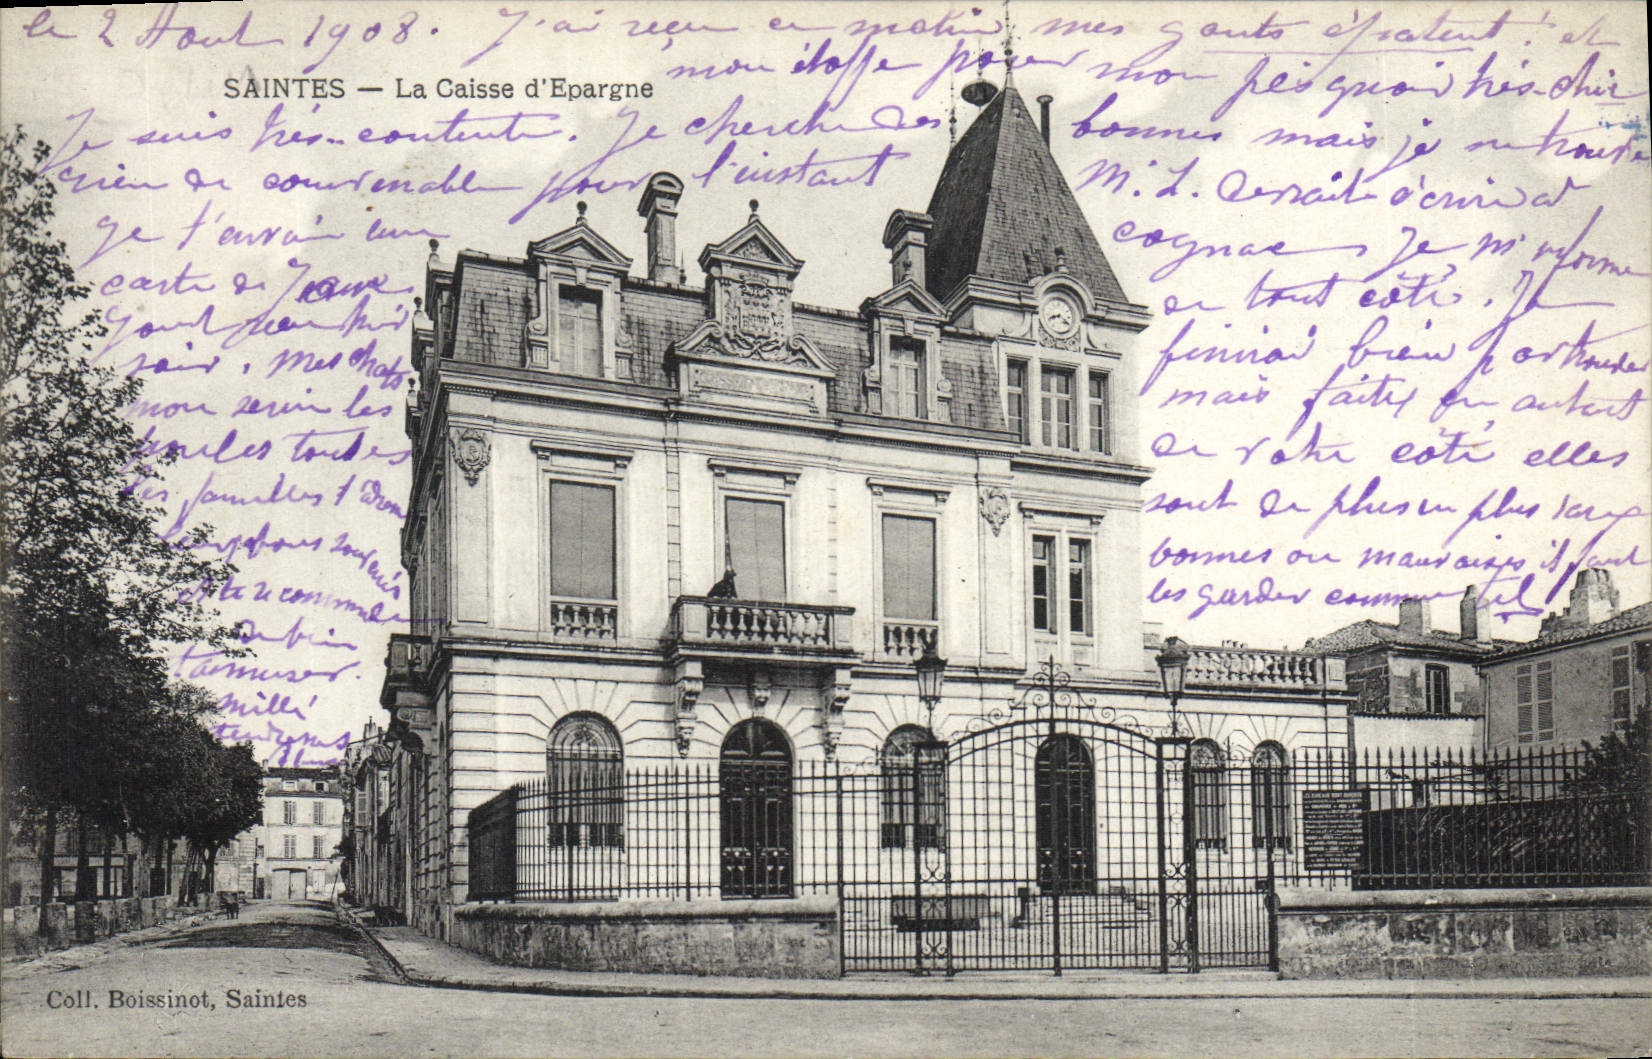 le 2 Aout 1908. J'ai reçu ce matin mes gants épatent! et
mon étoffe pour mon peignoir très-chic
SAINTES — La Caisse d'Epargne
Je suis très-contente. Je cherche des bonnes mais je ne trouve
rien de convenable pour l'instant M. L. devrait écrire à
cognac, Je m'informe
de tout côté. Je
finirai bien p
mais faites en autant
de votre côté elles
sont de plus en plus
bonnes ou mauvaises il faut
les garder comme tel
Je t'envoie une
carte de
soir. Mes chats
mon serin les
poules toutes
les familles t'
et te recommande
de bien
t'amuser.
mille
tendresses
Coll. Boissinot, Saintes